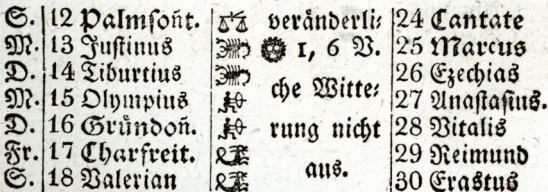 S. 12 Palmsoñt. veränderli: 24 Cantate
M. 13 Justinus 1, 6 V. 25 Marcus
D. 14 Tiburtius che Witte: 26 Ezechias
M. 15 Olympius 27 Anastasius.
D. 16 Gründoñ. rung nicht 28 Vitalis
Fr. 17 Charfreit. aus. 29 Reimund
S. 18 Valerian 30 Erastus